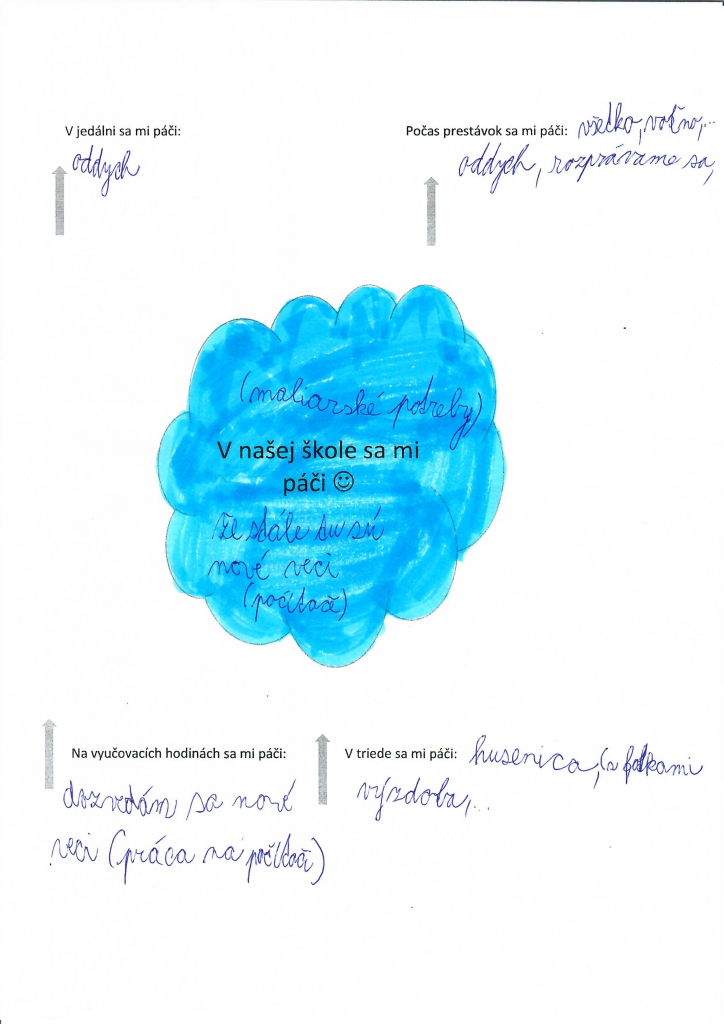 V jedálni sa mi páči:
oddych
Počas prestávok sa mi páči: všetko, voľno,...
oddych, rozprávame sa,
(maliarské potreby)
V našej škole sa mi
páči ☺
že stále tu sú
nové veci
(počítače)
Na vyučovacích hodinách sa mi páči:
dozvedám sa nové
veci (práca na počítači)
V triede sa mi páči: husenica, (s fotkami
výzdoba,...